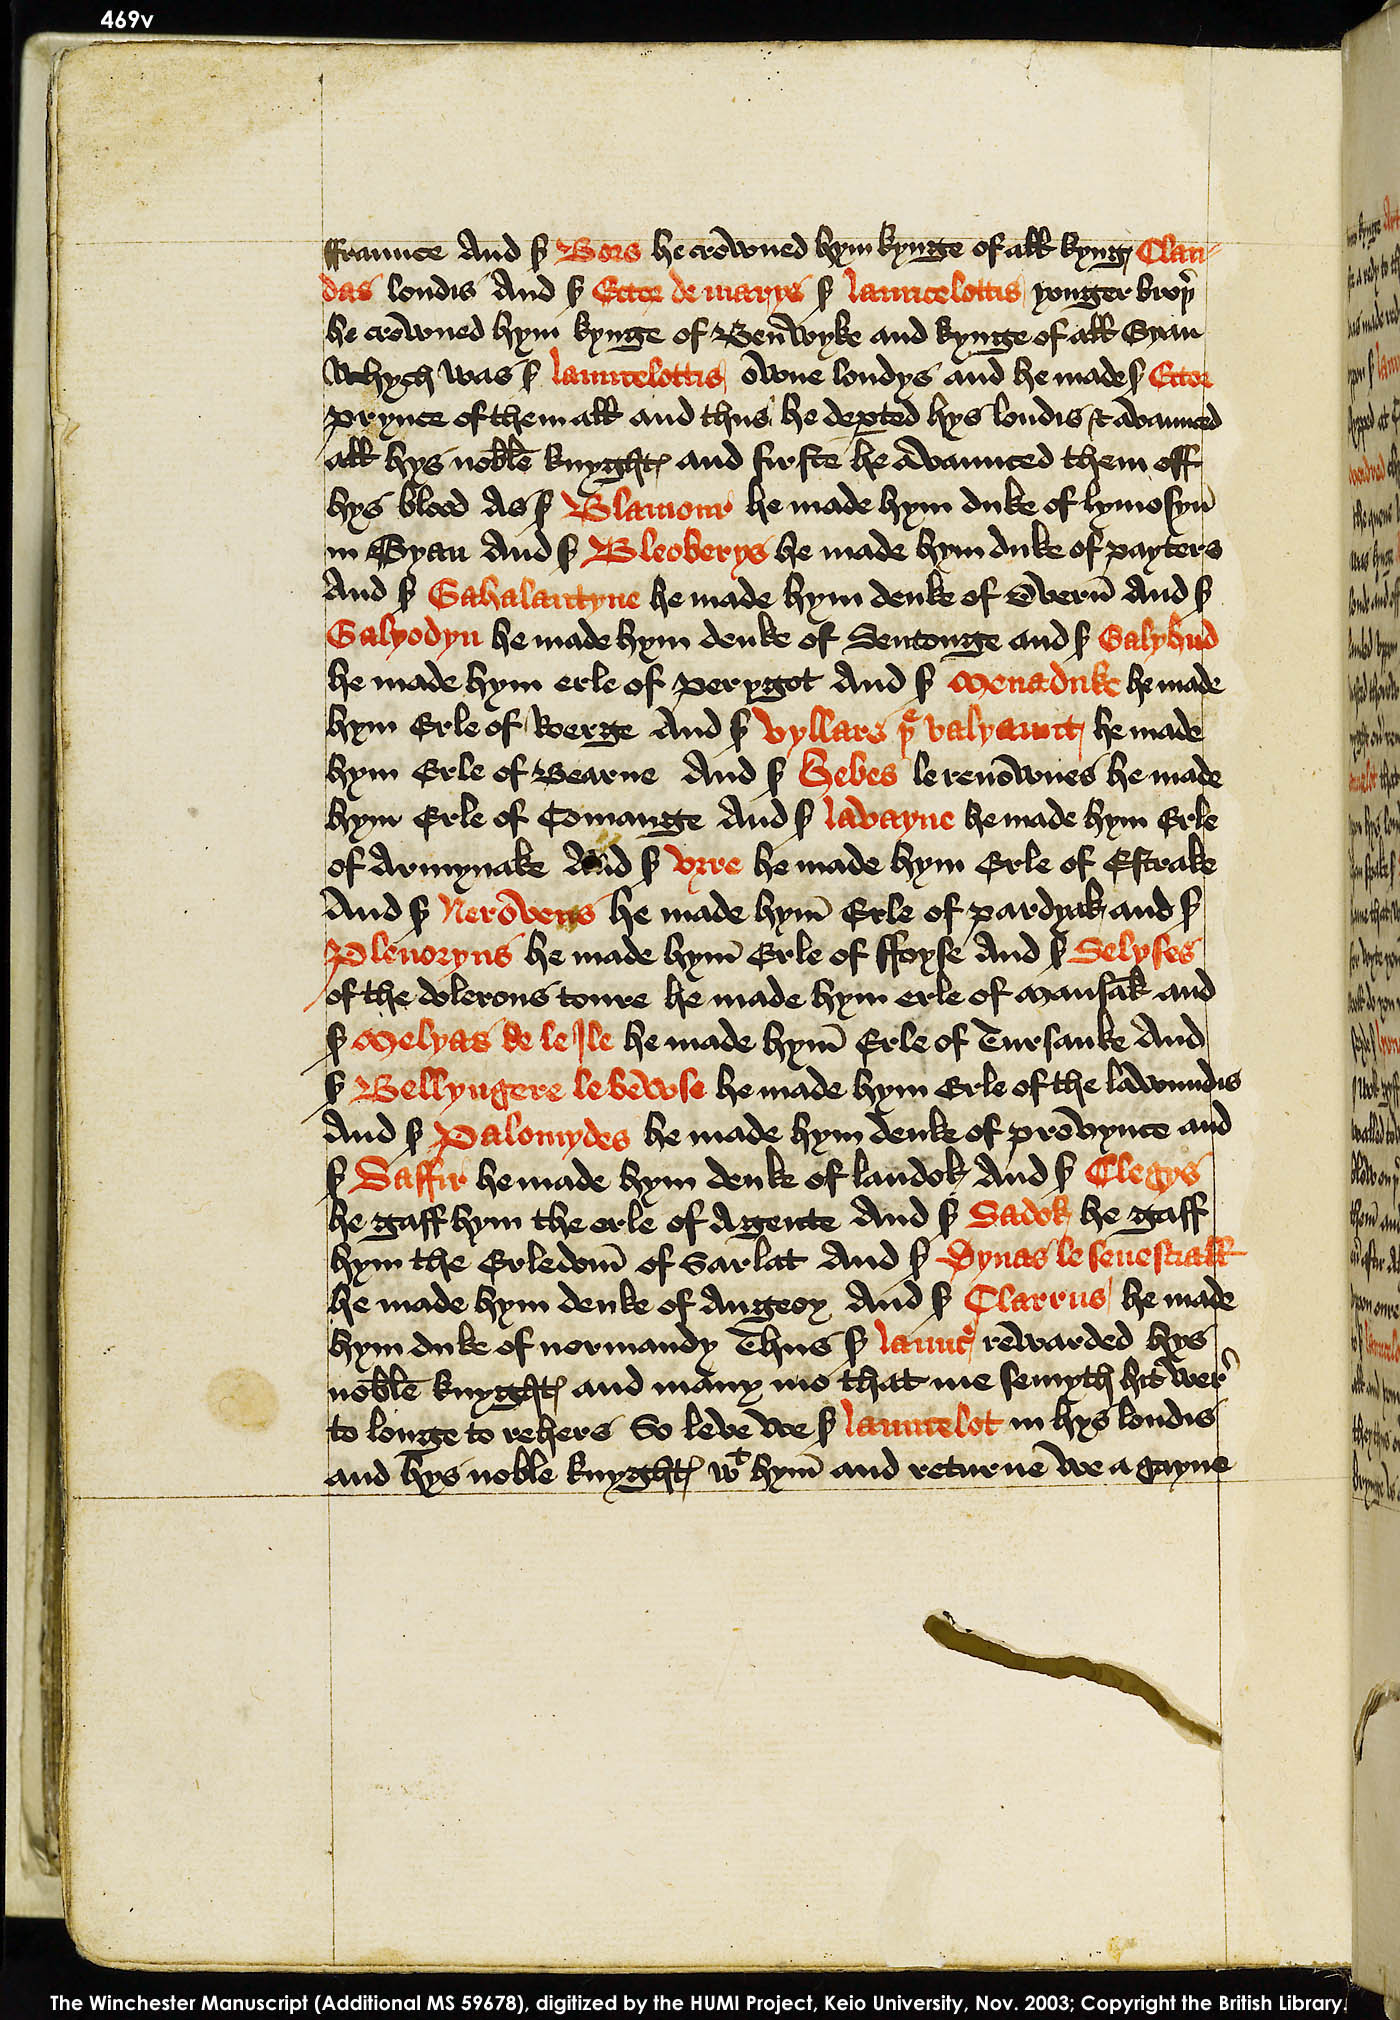 469v
ffraunce And Ꞩ Bors he crowned hym kynge of all kyng Clau-
das londis And Ꞩ Ector de marys Ꞩ launcelottis yonger broþ̉
he crowned hym kynge of Benwyke and kynge of all Gyan
Whych was Ꞩ launcelottis owne londys and he made Ꞩ Ector
prynce of them all and thus he deꝑted hys londis & avaunced
all hys noble knyghtꝭ and firste he avaunced them off
hys blood As Ꞩ Blamour he made hym duke of lymosyn̄
in Gyan And Ꞩ Bleoberys he made hym duke of payters
And Ꞩ Gahalantyne he made hym deuke of Overn̄ And Ꞩ
Galyodyn he made hym deuke of Sentonge and Ꞩ Galyhud
he made hym erle of perygot And Ꞩ Menaduke he made
hym Erle of Kerge And Ꞩ Vyllars þe valyaunt he made
hym Erle of Bearne And Ꞩ Hebes le renownes he made
hym Erle of Comange And Ꞩ lavayne he made hym Erle
of Armynake And Ꞩ Vrre he made hym Erle of Estrake
And Ꞩ Neroveus he made hym̄ Erle of pardyak and Ꞩ
Plenoryus he made hym̄ Erle of ffoyse And Ꞩ Selyses
of the dolerous toure he made hym erle of Mausāk and
Ꞩ Melyas de le Ile he made hym̄ Erle of Tursanke And
Ꞩ Bellyngere le bewse he made hym Erle of the lawundis
And Ꞩ Palomydes he made hym deuke of provynce and
Ꞩ Saffir he made hym deuke of landok And Ꞩ Clegys
he gaff hym the erle of Agente And Ꞩ Sadok he gaff
hym the Erledom̄ of Sarlat And Ꞩ Dynas le senesciall
he made hym deuke of Angeoy And Ꞩ Clarrus he made
hym duke of normandy Thus Ꞩ launc̉ rewarded hys
noble knyghtꝭ and many mo that me semyth hit wer̉
to longe to rehers So leve we Ꞩ launcelot in hys londis
and hys noble knyghtꝭ wt hym̄ and returne we a gayne
The Winchester Manuscript (Additional MS 59678), digitized by the HUMI Project, Keio University, Nov. 2003; Copyright the British Library.